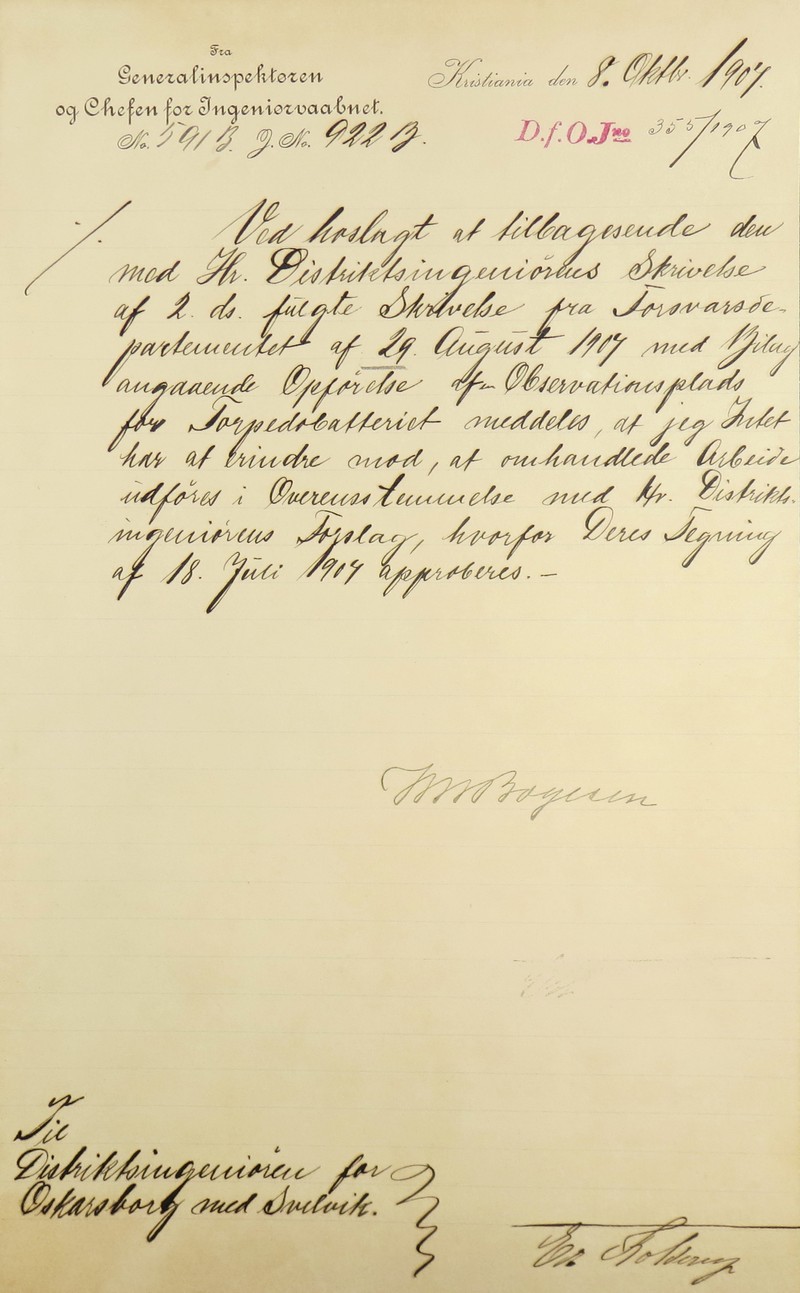 Fra
Generalinspektøren
og Chefen for Ingeniørvaabnet.
Kristiania den 8. Oktbr. 1907.
No. 591 B. J. No. 922 B.
D.f.O. Jno 355/1907
Ved hoslagt at tilbagesende den
med Hr. Distriktsingeniørens Skrivelse
af 2. ds. fulgte Skrivelse fra Forsvarsde-
partementet af 29. August 1907 med Bilag
angaaende Opførelse af Observationsplads
for Torpedobatteriet meddeles, at jeg Intet
har at erindre mod, at omhandlede Arbeide
udføres i Overensstemmelse med Hr. Distrikts-
ingeniørens Forslag, hvorfor Deres Tegning
af 18. Juli 1907 approberes. —
Børgesen
Til
Distriktsingeniøren for
Oskarsborg med Svelvik.